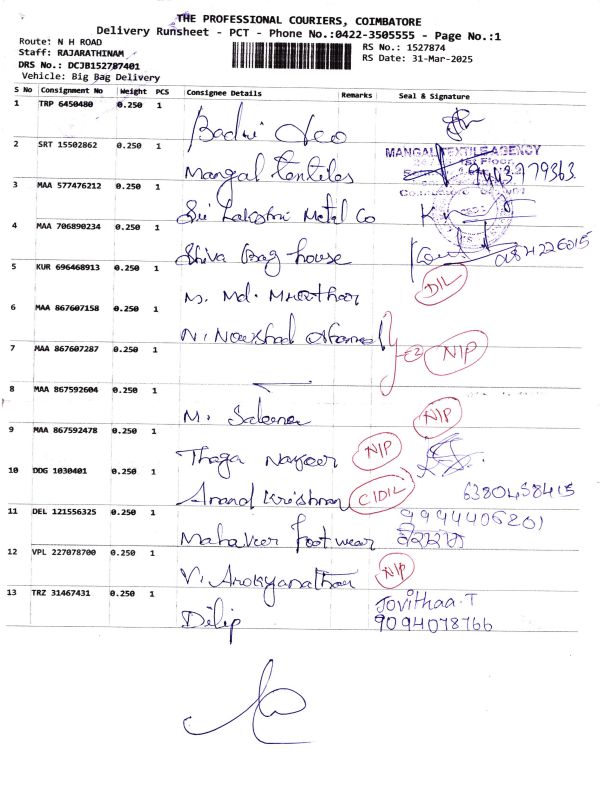 THE PROFESSIONAL COURIERS, COIMBATORE
Delivery Runsheet - PCT - Phone No.:0422-3505555 - Page No.:1
Route: N H ROAD
RS No.: 1527874
Staff: RAJARATHINAM
RS Date: 31-Mar-2025
DRS No.: DCJB152787401
Vehicle: Big Bag Delivery
S No Consignment No Weight PCS Consignee Details Remarks Seal & Signature
1 TRP 6450480 0.250 1
2 SRT 15502862 0.250 1 Mangal Textiles MANGAL TEXTILE AGENCY 9443779363
3 MAA 577476212 0.250 1 Sri Lakshmi Metal Co
4 MAA 706890234 0.250 1 Shiva Bag house
5 KUR 696468913 0.250 1 M. Md. DIL
6 MAA 867607158 0.250 1 N. Nowshad
7 MAA 867607287 0.250 1 NIP
8 MAA 867592604 0.250 1 M. Saleena NIP
9 MAA 867592478 0.250 1 Thaga NIP
10 DDG 1030401 0.250 1 Anand Krishnan CIDIL 6380458415
11 DEL 121556325 0.250 1 Mahaveer footwear 9994406201
12 VPL 227078700 0.250 1 V. NIP
13 TRZ 31467431 0.250 1 Dilip Jovithaa.T
9094078766